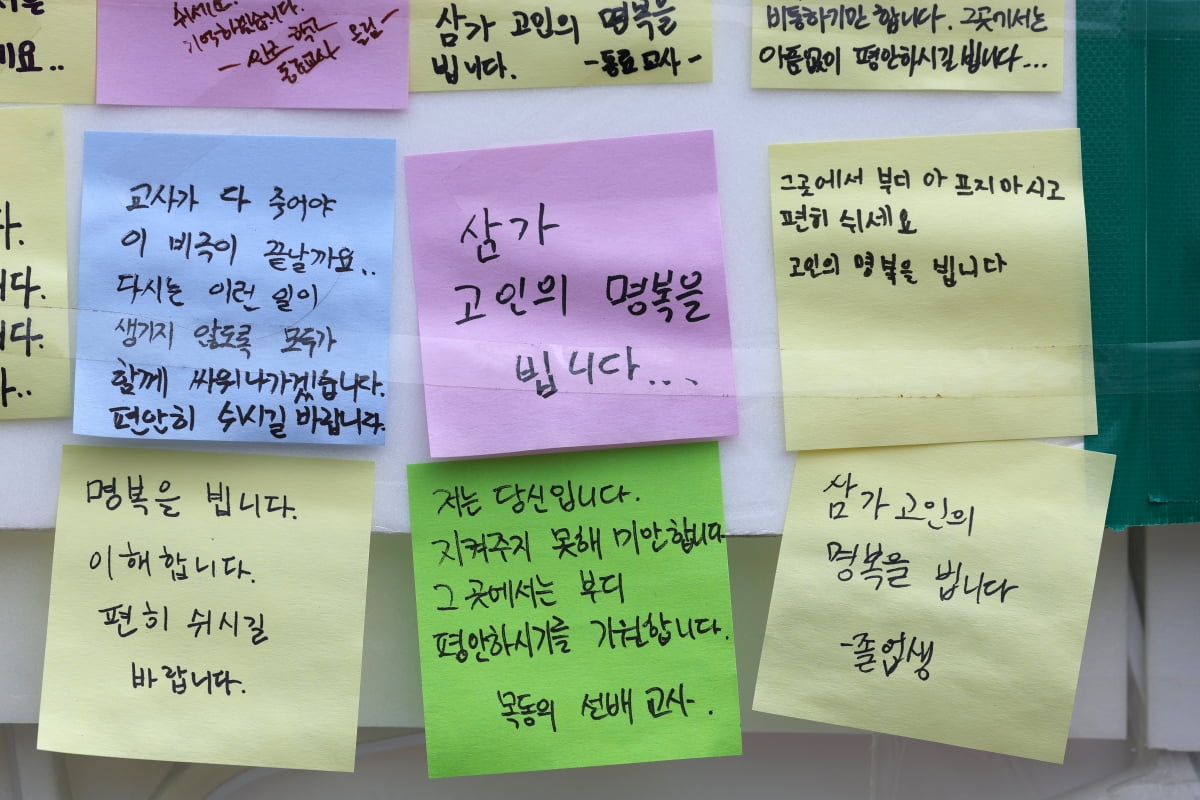 쉬세요.
기억하겠습니다.
동료교사
삼가 고인의 명복을
빕니다. -동료 교사-
비통하기만 합니다. 그곳에서는
아픔없이 평안하시길 빕니다...
교사가 다 죽어야
이 비극이 끝날까요..
다시는 이런 일이
생기지 않도록 모두가
함께 싸워나가겠습니다.
편안히 쉬시길 바랍니다.
삼가
고인의 명복을
빕니다...
그곳에서 부디 아프지마시고
편히 쉬세요
고인의 명복을 빕니다
명복을 빕니다.
이해합니다.
편히 쉬시길
바랍니다.
저는 당신입니다.
지켜주지 못해 미안합니다
그 곳에서는 부디
평안하시기를 기원합니다.
목동의 선배 교사.
삼가 고인의
명복을 빕니다
-졸업생